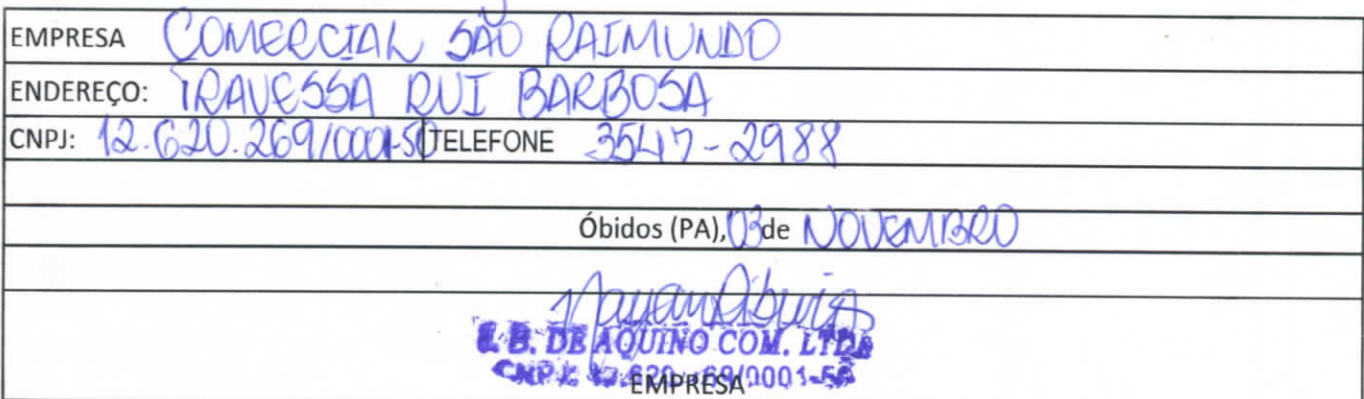 EMPRESA COMERCIAL SÃO RAIMUNDO
ENDEREÇO: TRAVESSA RUI BARBOSA
CNPJ: 12.620.269/0001-50 TELEFONE 3547-2988
Óbidos (PA), 03 de NOVEMBRO
B. DE AQUINO COM. LTDA
EMPRESA